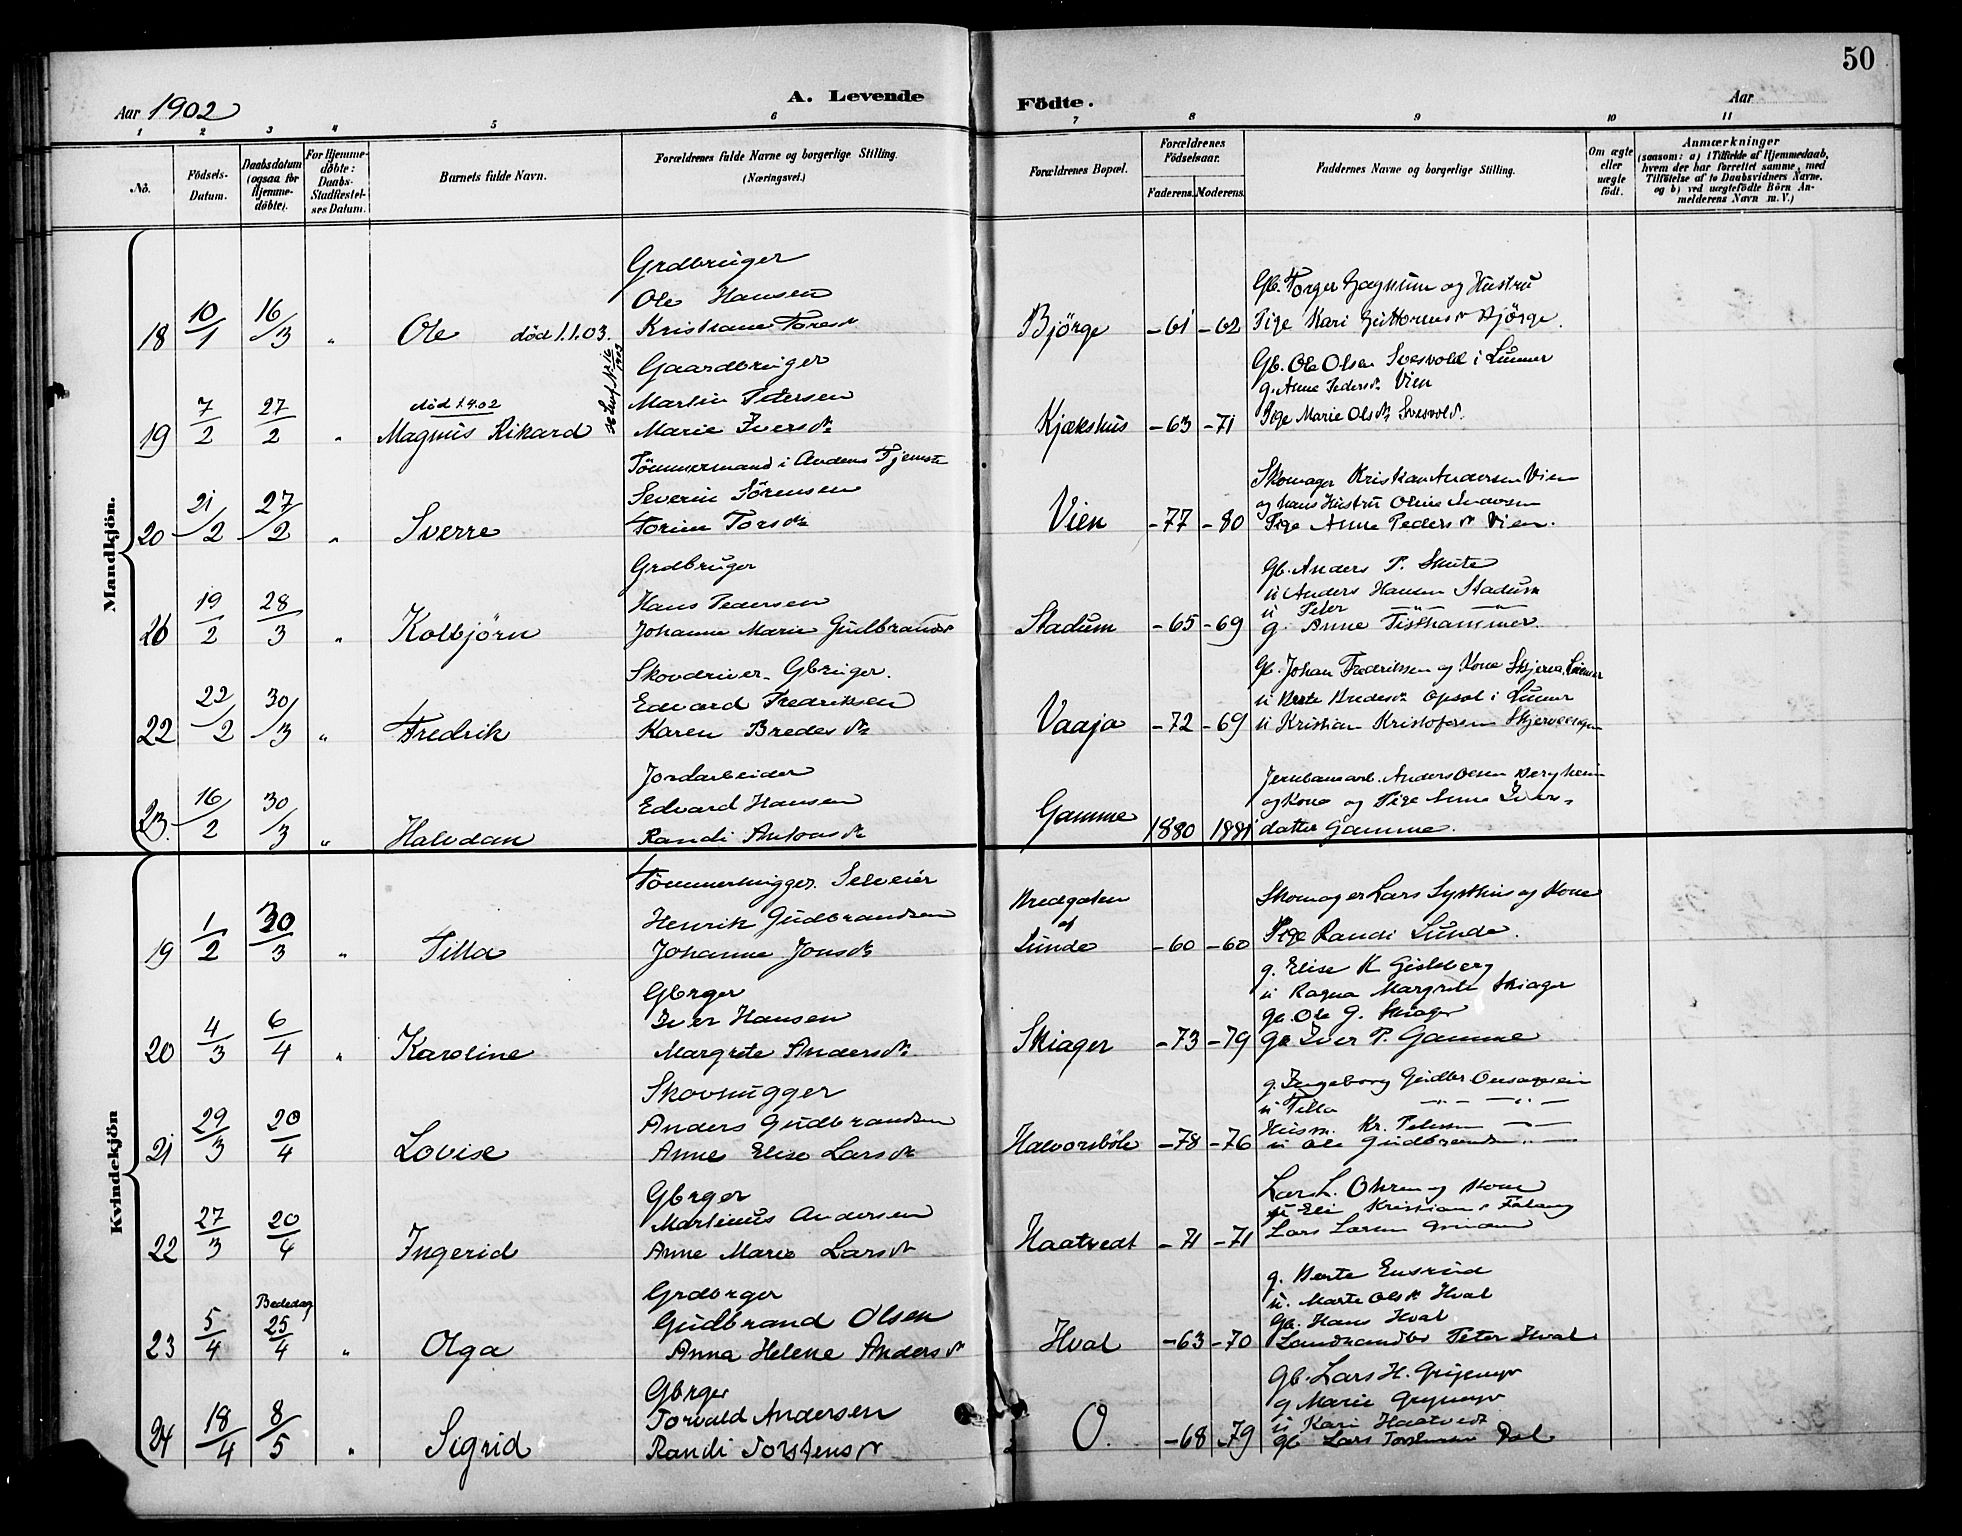 50
Aar 1902
A. Levende Födte.
Aar
1 2 3 4 5 6 7 8 9 10 11
No.
Födsels-Datum.
Daabsdatum (ogsaa for Hjemme-döbte).
For Hjemme-döbte: Daabs-Stadfæstel-ses Datum.
Barnets fulde Navn.
Forældrenes fulde Navne og borgerlige Stilling. (Næringsvei.)
Forældrenes Bopæl.
Forældrenes Födselsaar.
Faderens. Moderens.
Faddernes Navne og borgerlige Stilling.
Om ægte eller uægte födt.
Anmærkninger
(saasom: a) i Tilfælde af Hjemmedaab,
hvem der har forrettet samme, med
Tilföielse af to Daabsvidners Navne.
og b) ved uægtefödte Börn An-
melderens Navn m. V.)
Mandkjön.
Grdbruger
Ole Hansen
18 10/1 16/3 " Ole död 1.1.03. Kristiane Toresdr
Björge -61 -62
Gb. Torger Gagnum og Hustru
Pige Kari Guttormsdr Bjørge.
Gaardbruger
Martin Petersen
död 1.4.02
19 7/2 27/2 " Magnus Rikard Marie Iversdr
Kjækshus -63 -71
Gb. Ole Olsen Svesvold i Lunner
g. Anne Pedersdr Vien
Pige Marie Olsdr Svesvold.
Tömmermand i Andens Tjeneste
Severin Sörensen
20 21/2 27/2 " Sverre Torine Torsdr
Vien -77 -80
Skomager Kristian Andersen Vien
og hans Hustru Oline
Pige Anne Pedersdr Vien.
Grdbruger
Hans Pedersen
19/2 28/3 " Kolbjörn Johanne Marie Gulbrandsdr
Stadum -65 -69
Gb. Anders P. Skute
u Anders Hansen Stadum
u Peter — " — " —
g. Anne Tisthammer.
Skovdriver. Gbruger.
Edvard Fredriksen
22 22/2 30/3 " Fredrik Karen Bredesdr
Vaaja -72 -69
Gb. Johan Fredriksen og Kone Skjerva Lunner
u Berte Bredesdr Opsal i Lunner
u Kristian Kristofersen
Jordarbeider
Edvard Hansen
23. 16/2 30/3 " Halvdan Randi Antonsdr
Gamme 1880 1881
Jernbanearb. Anders Olsen Bergheim
og Kone og Pige Anne Iver-
datter Gamme.
Kvindekjön
Tömmerhugger. Selveier
Henrik Gudbrandsen
19 1/2 30/3 " Tilla Johanne Jonsdr
Bredgaten af Lunde -60 -60
Skomager Lars Lysthus og Kone
Pige Randi Lunde.
Gbrger
Iver Hansen
20 4/3 6/4 " Karoline Margrete Andersdr
Skiager -73 -79
g. Elise K Gisleberg
u Ragna Margrete Skiager
gb. Ole G. Skiager
gb Iver P. Gamme
Skovhugger
Anders Gudbrandsen
21 29/3 20/4 Lovise Anne Elise Larsdr
Halvorsböle -78 -76
g. Ingeborg Gudbr.
u Tilla — " — " —
Husm. Kr. Petersen — " —
u Ole Gudbrandsen " —
Gbrger
Martinus Andersen
22 27/3 20/4 Ingerid Anne Marie Larsdr
Haatvedt -71 -71
Lars L. Ohren og Kone
u Eli Kristians. Falang
Lars Larsen
Grdbrger
Gudbrand Olsen
Bededag
23 5/4 25/4 " Olga Anna Helene Andersdr
Hval -63 -70
g. Berte Ensrud
u. Marte Olsdr Hval
Gb. Hans Hval
Landhandler Peter Hval
Gbrger
Torvald Andersen
24 18/4 8/5 " Sigrid Randi Torstensdr
O. -68 -79
Gb. Lars H. Grijmyr
g Marie Grymyr
u Kari Haatvedt
gb Lars Torstensen Dal